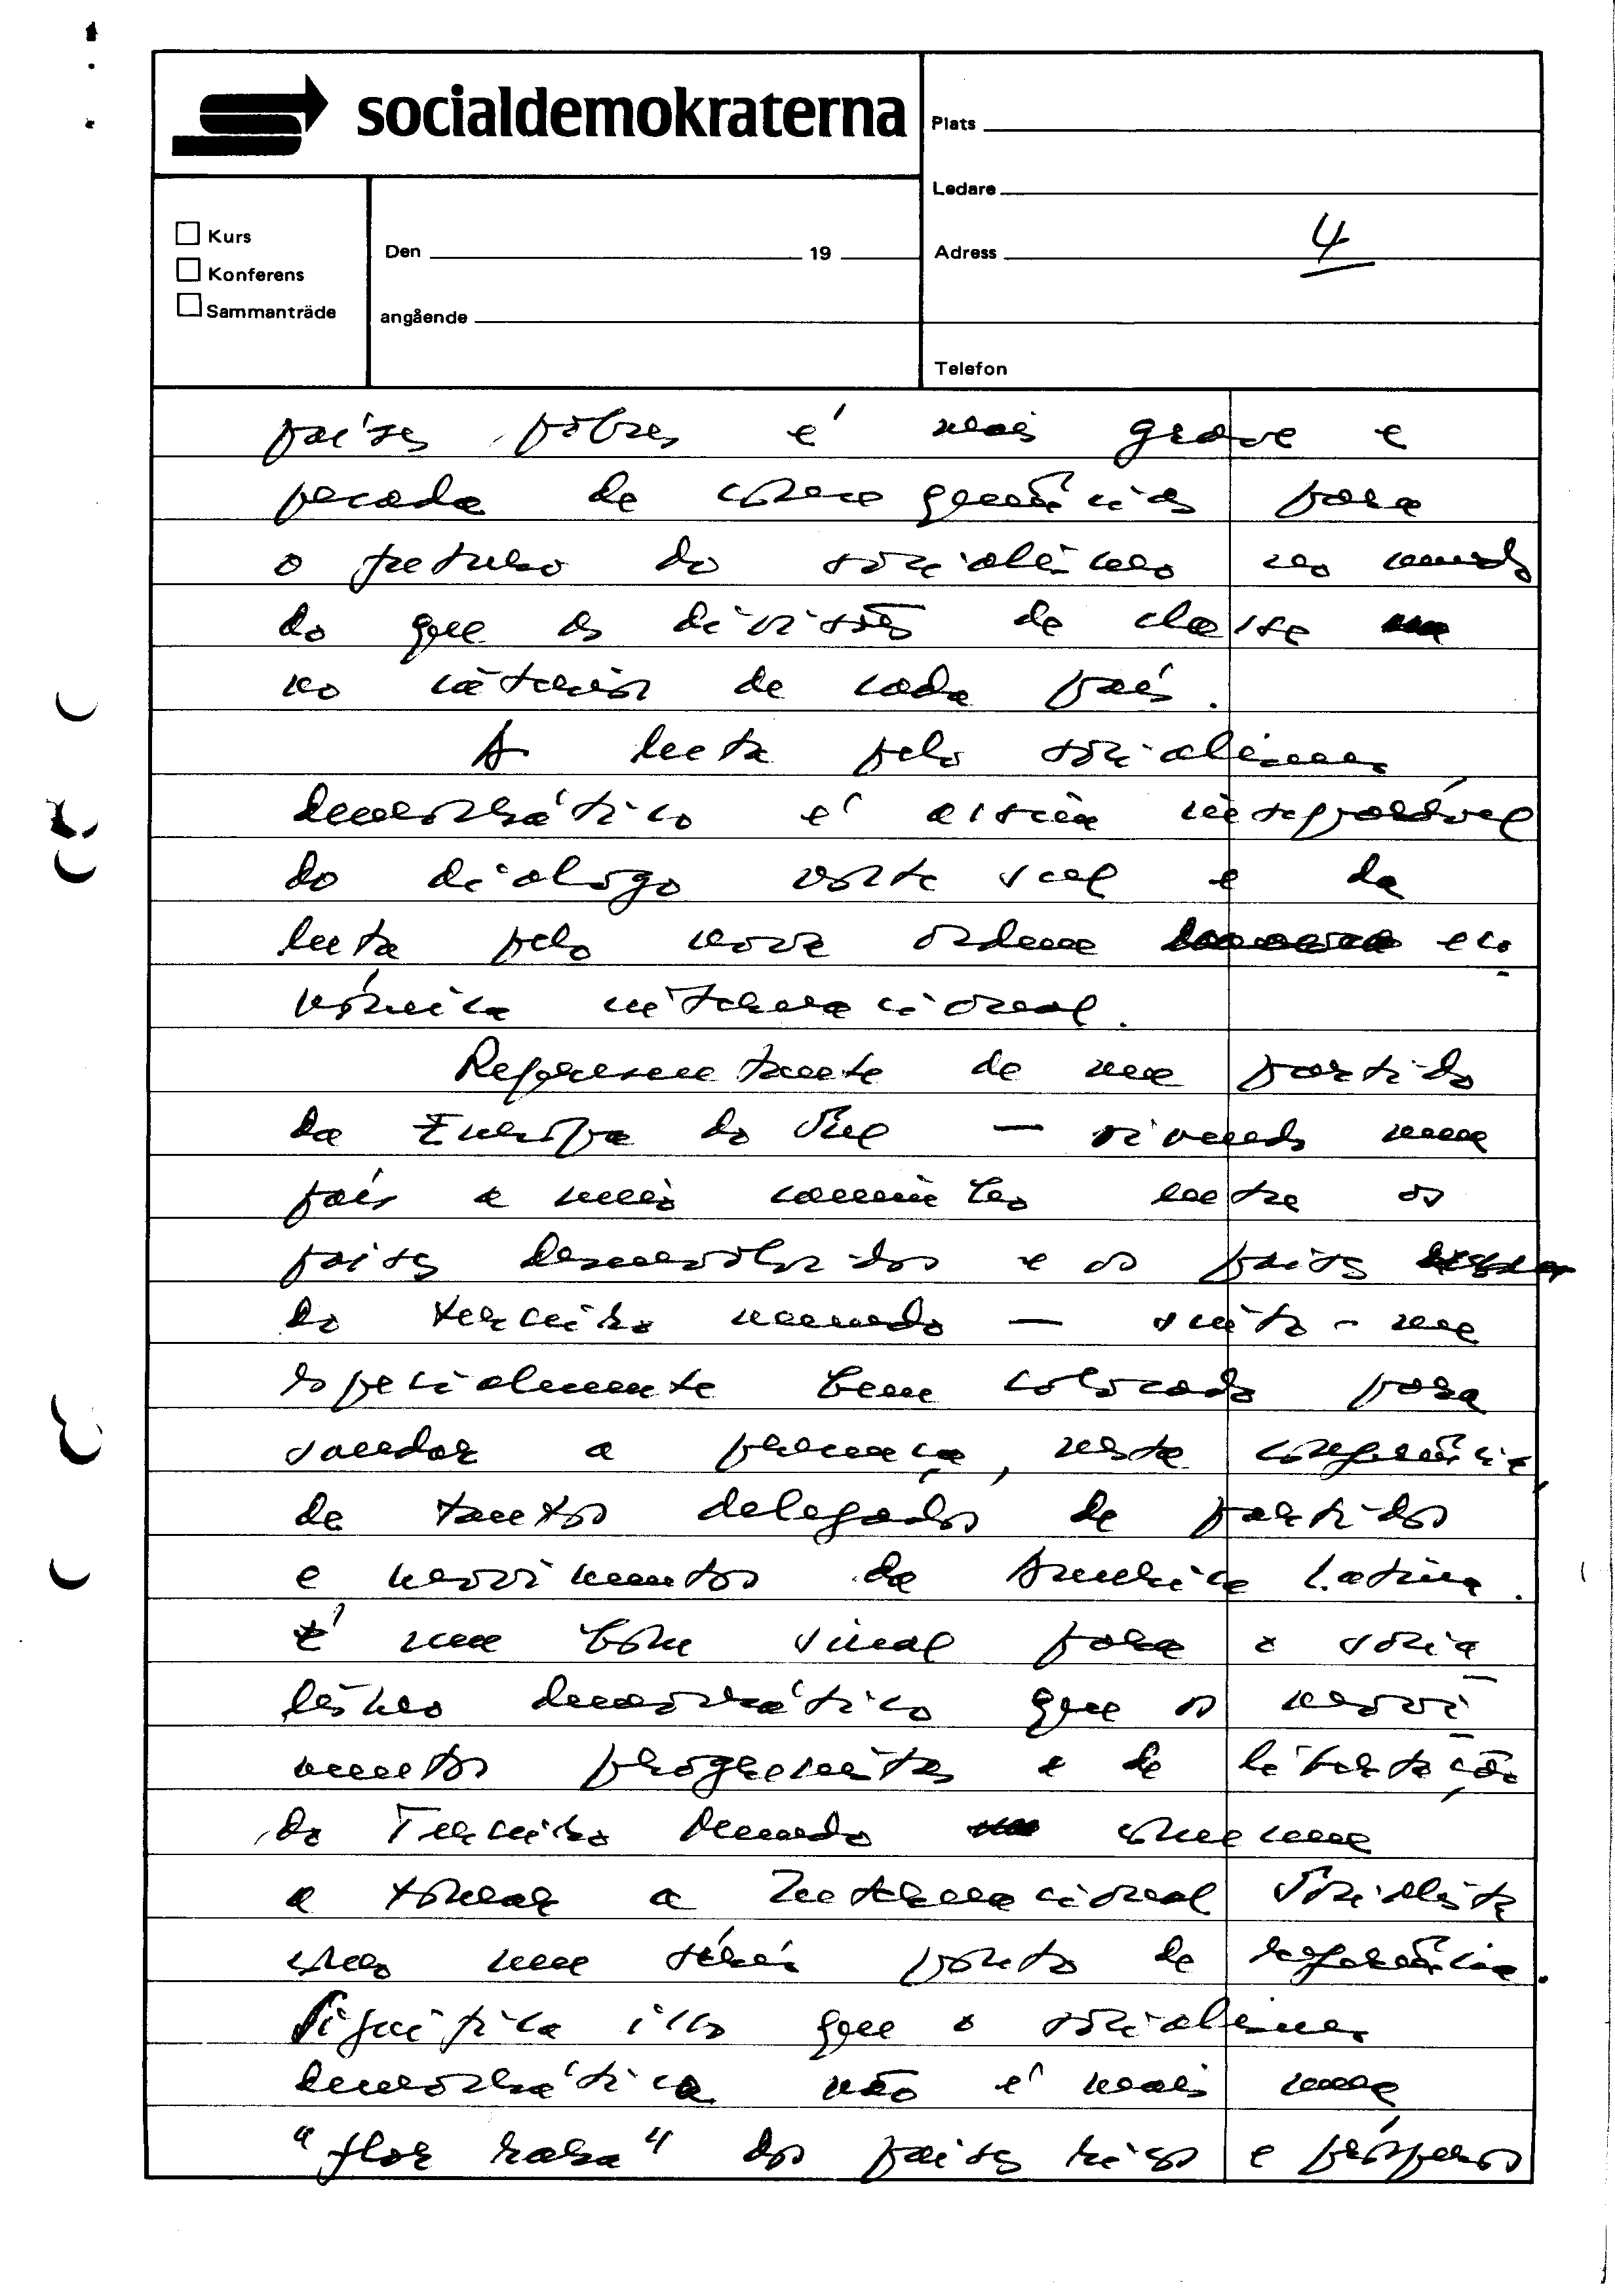 socialdemokraterna
Plats
Ledare
Kurs
Konferens
Sammanträde
Den 19
angående
Adress 4
Telefon
países pobres é mais grave e
pecada de consequências para
o futuro do socialismo no mundo
do que as divisões de classe
no interior de cada país.
A luta pelo socialismo
democrático é assim inseparável
do diálogo norte sul e da
luta pelo nova ordem eco
nómica internacional.
Representante de um partido
da Europa do Sul — vivendo num
país a meio caminho entre os
países desenvolvidos e os países
do terceiro mundo — sinto-me
especialmente bem colocado para
saudar a presença, nesta conferência,
de tantos delegados de partidos
e movimentos da América Latina.
É um bom sinal para o socia
lismo democrático que os movi-
mentos progressistas e de libertação
do Terceiro Mundo comecem
a tomar a Internacional Socialista
como um sério ponto de referência.
Significa isso que o socialismo
democrático não é mais uma
"flor rara" dos países ricos e prósperos